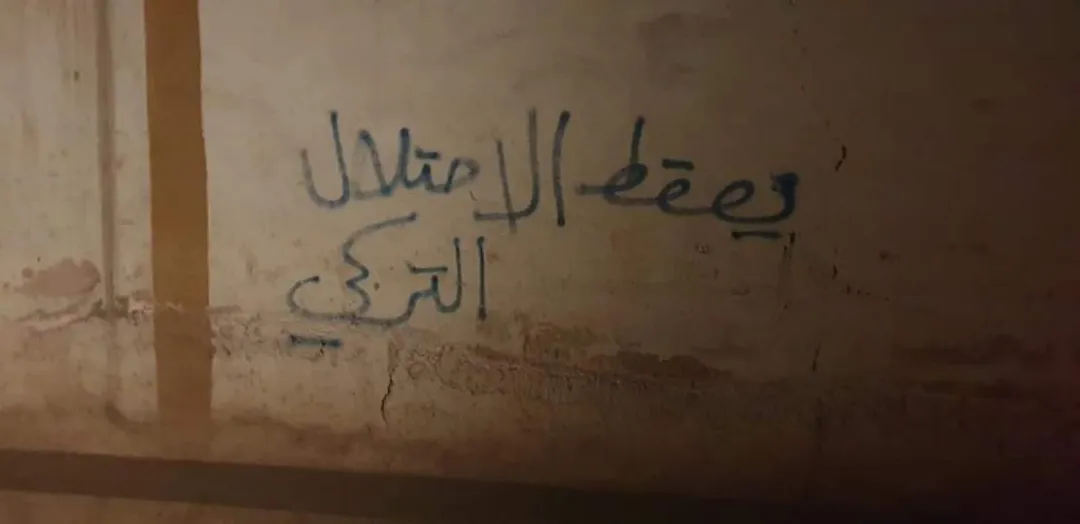 يصقط الاحتلال
التركي